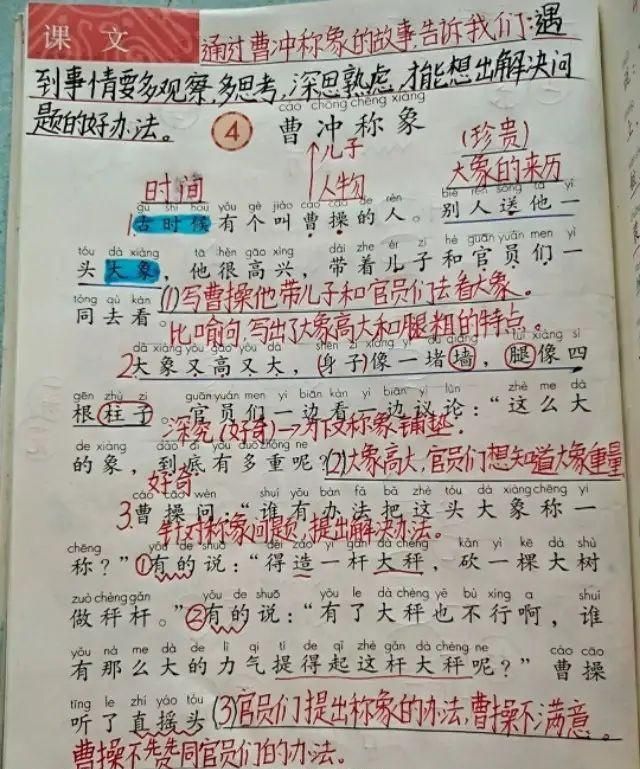 课文
通过曹冲称象的故事,告诉我们:遇
到事情要多观察,多思考,深思熟虑,才能想出解决问
题的好办法。
cáo chōng chēng xiàng
④ 曹冲称象
儿子
人物
(珍贵)
大象的来历
时间
gǔ shí hou yǒu gè jiào cáo cāo de rén bié rén sòng tā yì
1 古时候有个叫曹操的人。别人送他一
tóu dà xiàng tā hěn gāo xìng dài zhe ér zi hé guān yuán men yì
头大象,他很高兴,带着儿子和官员们一
tóng qù kàn
同去看。
(1)写曹操他带儿子和官员们去看大象。
比喻句,写出了大象高大和腿粗的特点。
dà xiàng yòu gāo yòu dà shēn zi xiàng yì dǔ qiáng tuǐ xiàng sì
2 大象又高又大,身子像一堵墙,腿像四
gēn zhù zi guān yuán men yì biān kàn yì biān yì lùn zhè me dà
根柱子。官员们一边看一边议论:“这么大
深究(好奇)→为下文称象铺垫.
de xiàng dào dǐ yǒu duō zhòng ne
的象,到底有多重呢?”
(2)大象高大,官员们想知道大象重量
好奇
cáo cāo wèn shuí yǒu bàn fǎ bǎ zhè tóu dà xiàng chēng yì
3.曹操问:“谁有办法把这头大象称一
针对称象问题,提出解决办法。
chēng yǒu de shuō děi zào yì gǎn dà chèng kǎn yì kē dà shù
称?”①有的说:“得造一杆大秤,砍一棵大树
zuò chèng gǎn yǒu de shuō yǒu le dà chèng yě bù xíng a shuí
做秤杆。”②有的说:“有了大秤也不行啊,谁
yǒu nà me dà de lì qi tí de qǐ zhè gǎn dà chèng ne cáo cāo
有那么大的力气提得起这杆大秤呢?”曹操
tīng le zhí yáo tóu
听了直摇头
(3)官员们提出称象的办法,曹操不满意
。
曹操不赞同官员们的办法。